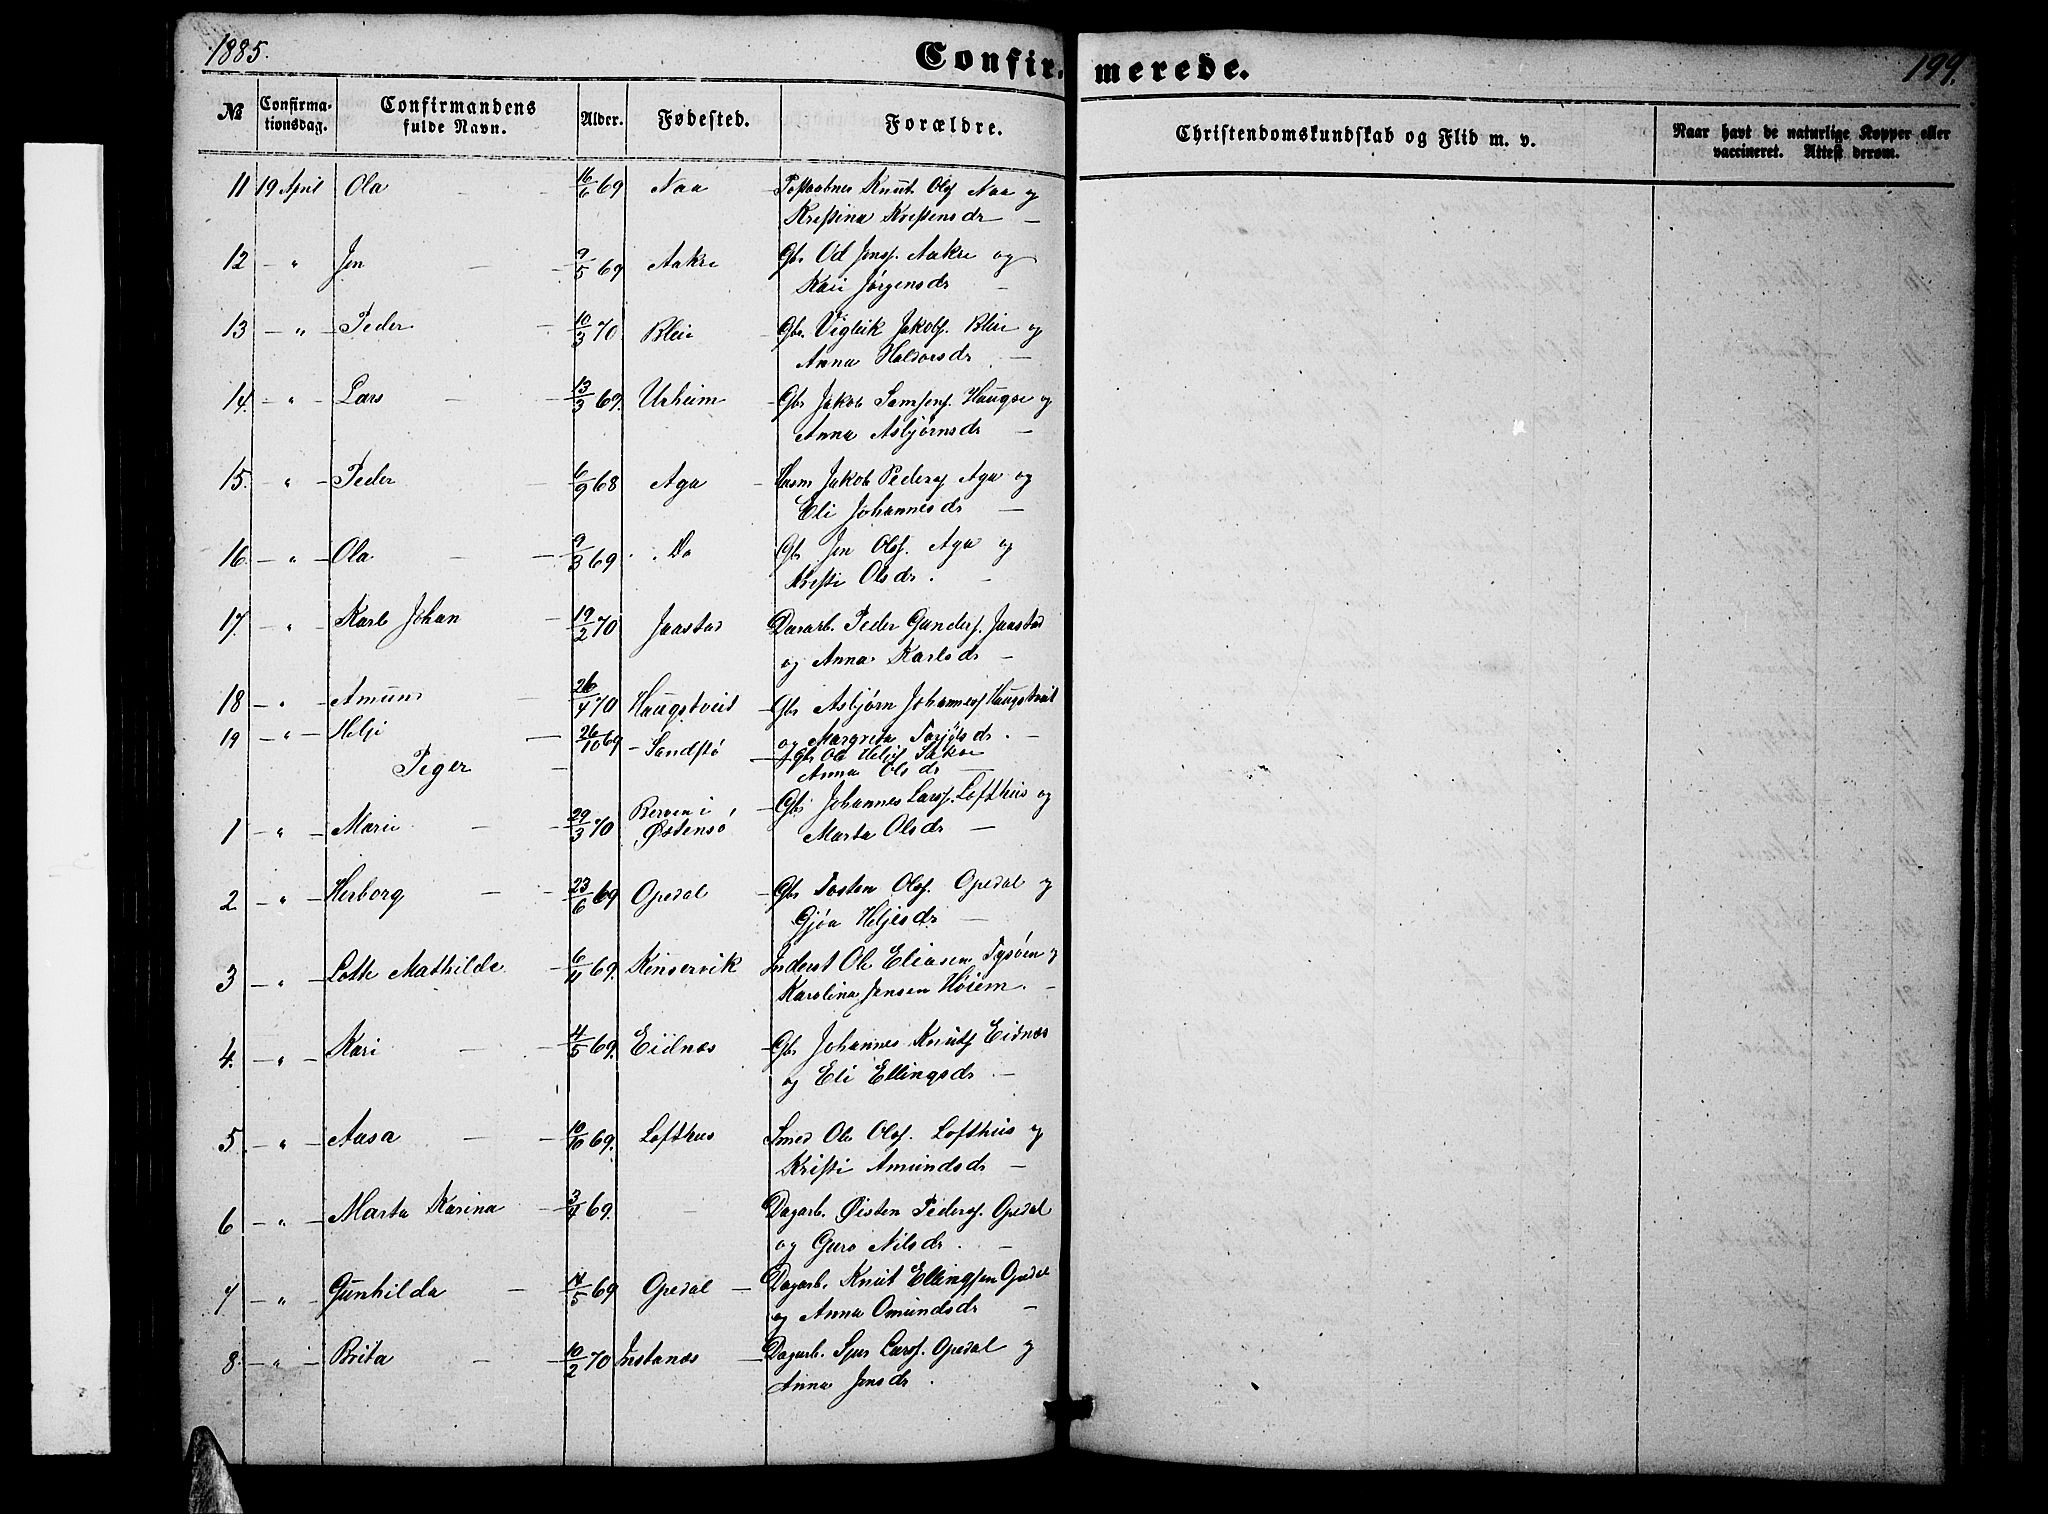 1885.
Confirmerede.
199.
№ Confirmationsdag. Confirmandens fulde Navn. Alder. Fødested. Forældre. Christendomskundskab og Flid m. v. Naar havt de naturlige Kopper eller vaccineret. Attest derom.
11 19 April Ola 16/6 69 Naa Knut Ols Naa og
Kristina Kristensdr
12 " Jon 9/5 69 Aakre Gbr Od Jons. Aakre og
Kari Jørgensdr
13 " Peder 10/3 70 Bleie Gbr. Vigleik Jakobs. Bleie og
Anna Haldorsdr
14. " Lars 13/3 69. Urheim Gbr Jakob Samsons. Haugse og
Anna Asbjørnsdr
15. " Peder 6/9 68 Aga Husm Jakob Peders Aga og
Eli Johannesdr
16. " Ola 9/3 69 Do Gbr Jon Ols. Aga og
Kristi Olsdr.
17. " Karl Johan 19/2 70 Jaastad Peder Gunders. Jaastad
og Anna Karlsdr
18 " Amund 26/4 70 Haugstveit Gbr Asbjørn Johannes Haugstveit
19 " Helje 26/10 69 Sandstø og Margreta Torjølsdr.
Gbr Od Heljes
Anna Olsdr
Piger
1 " Mari 29/3 70 Berven i Gbr Johannes Lars. Lofthus og
Østensø Marta Olsdr
2 " Herborg 23/6 69 Opedal Gbr Tosten Ols. Opedal og
Gjøa Heljesdr.
3 " Lotte Mathilde 6/11 69. Kinservik Inderst Ole Eliasen Tysøen og
Karolina Jensen Høiem.
4. " Kari 4/5 69. Eidnæs Gbr Johannes Knuts Eidnæs
og Eli Ellingsdr.
5. " Aasa 10/10 69. Lofthus Smed Ole Ols. Lofthus og
Kristi Amundsdr
6 " Marta Karina 3/4 69. Dagarb. Øisten Peders. Opedal
og Guro Nilsdr.
7 " Gunhilda 14/5 69 Opedal Dagarb. Knut Ellingsen Opedal
og Anna Omundsdr
8. " Brita 10/2 70 Instanes Dagarb. Sjur Lars. Opedal og
Anna Jonsdr.